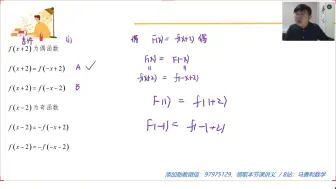 (1)
f(x+2)为偶函数
f(x+2)=f(-x+2) A ✓
f(x+2)=f(-x-2) B
f(x-2)为奇函数
f(x-2)=-f(-x+2)
f(x-2)=-f(-x-2)
偶 F(x)= f(x+2) 偶
F(x) = F(-x)
|| ||
f(x+2) = f(-x+2)
F(1) = f(1+2)
F(-1) = f(-1+2)
添加助教微信:97975129,领取本节课讲义 / B站:马费利数学